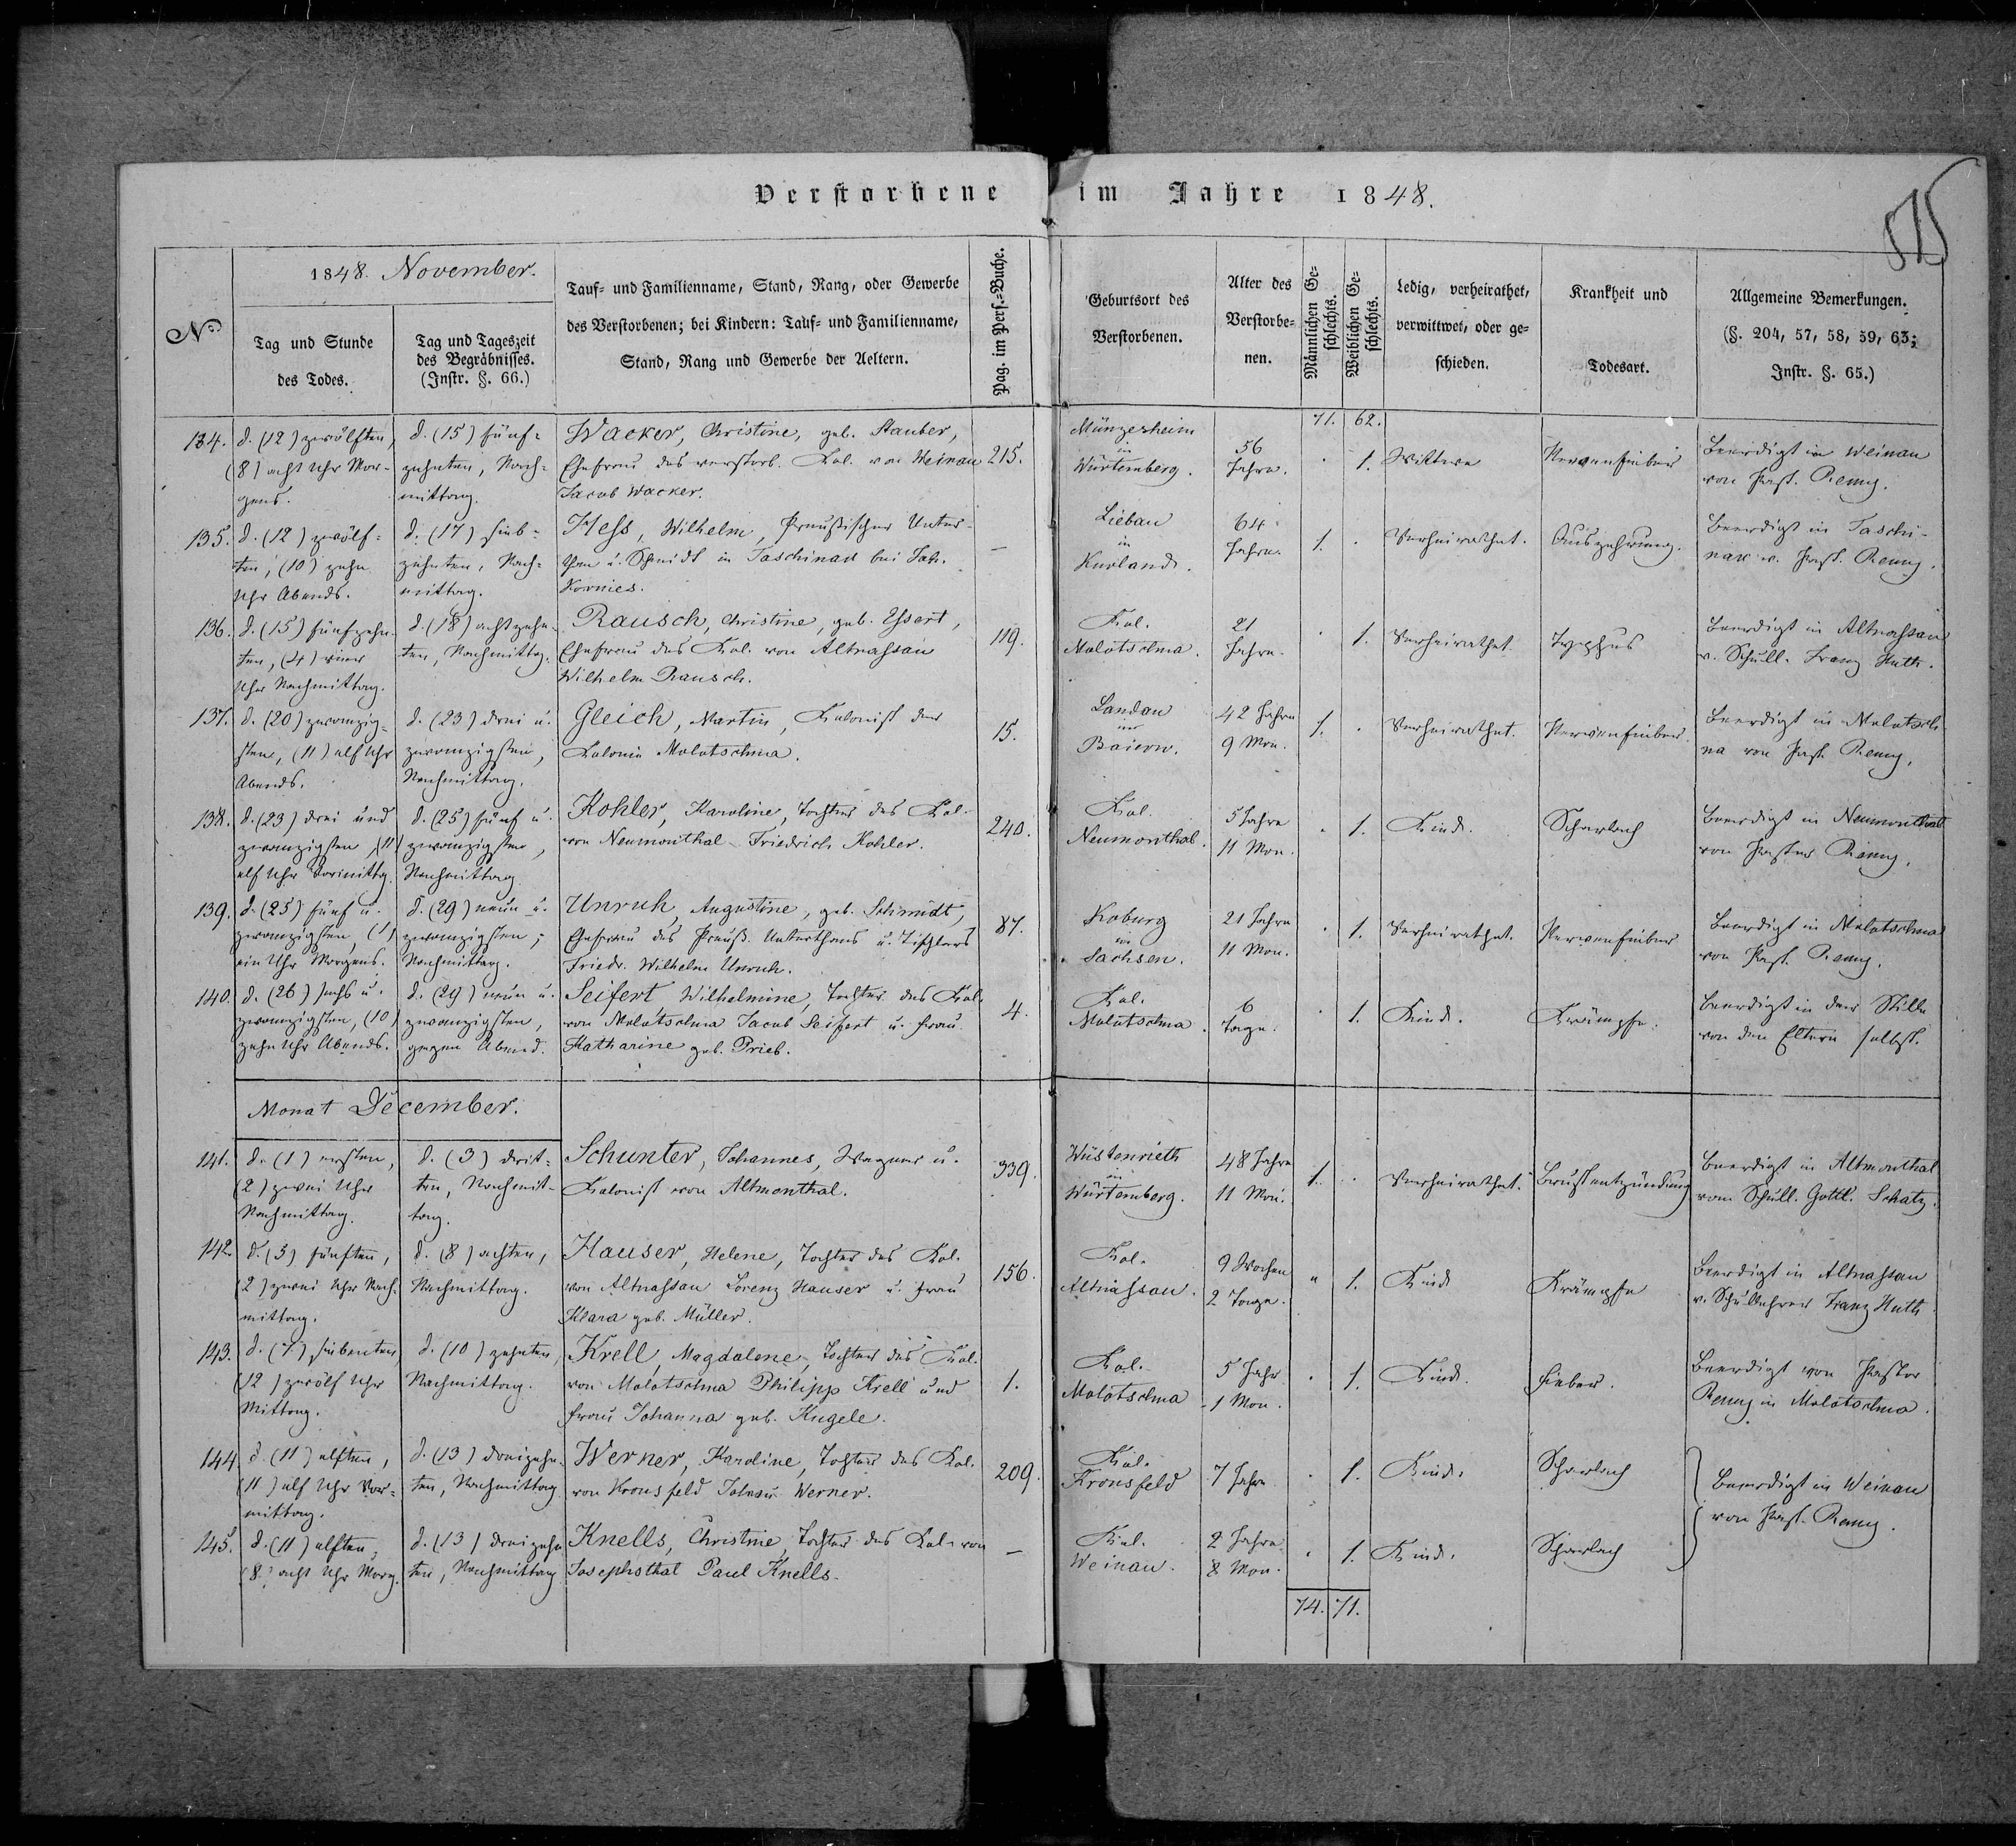 Verstorbene im Jahre 1848.
515
No
1848. November.
Tag und Stunde
des Todes.
Tag und Tageszeit
des Begräbnisses.
(Instr. §. 66.)
Tauf- und Familienname, Stand, Rang, oder Gewerbe
des Verstorbenen; bei Kindern: Tauf- und Familienname,
Stand, Rang und Gewerbe der Aeltern.
Pag. im Pers.-Buche.
Geburtsort des
Verstorbenen.
Alter des
Verstorbe-
nen.
Männlichen Ge-
schlechts.
Weiblichen Ge-
schlechts.
Ledig, verheirathet,
verwittwet, oder ge-
schieden.
Krankheit und
Todesart.
Allgemeine Bemerkungen.
(§. 204, 57, 58, 59, 63;
Instr. §. 65.)
71. 62.
134.
d. (12) zwölften,
(8) acht Uhr Mor-
gens.
d. (15) fünf-
zehnten, Nach-
mittag.
Wacker, Christine, geb. Stauber,
Ehefrau des verstorb. Kol. von Weinau
Jacob Wacker.
215.
Münzesheim
in
Würtemberg.
56
Jahre.
1.
Wittwe
Nervenfieber
Beerdigt in Weinau
von Past. Remy.
135.
d. (12) zwölf-
ten, (10) zehn
Uhr Abends.
d. (17) sieb-
zehnten, Nach-
mittag.
Hess, Wilhelm, Preußischer Unter-
than u. Schmidt in Taschinak bei Joh.
Kornies.
—
Liebau
in
Kurland.
64
Jahre.
1.
Verheirathet.
Auszehrung.
Beerdigt in Taschi-
nak v. Past. Remy.
136.
d. (15) fünfzehn-
ten, (4) vier
Uhr Nachmittag.
d. (18) achtzehn-
ten, Nachmittag.
Rausch, Christine, geb. Essert,
Ehefrau des Kol. von Altnassau
Wilhelm Rausch.
119.
Kol.
Molotschna.
21
Jahre.
1.
Verheirathet.
Typhus
Beerdigt in Altnassau
v. Schull. Franz Huth.
137.
d. (20) zwanzig-
sten, (11) elf Uhr
Abends.
d. (23) drei u.
zwanzigsten,
Nachmittag.
Gleich, Martin, Kolonist der
Kolonie Molotschna.
15.
Landau
in
Baiern.
42 Jahre
9 Mon.
1.
Verheirathet.
Nervenfieber.
Beerdigt in Molotsch
na von Past. Remy.
138.
d. (23) drei und
zwanzigsten (11)
elf Uhr Vormittg.
d. (25) fünf u.
zwanzigsten,
Nachmittag.
Kohler, Karoline, Tochter des Kol.
von Neumonthal Friedrich Kohler.
240.
Kol.
Neumonthal.
5 Jahre
11 Mon.
1.
Kind.
Scharlach
Beerdigt in Neumonthal
von Pastor Remy.
139.
d. (25) fünf u.
zwanzigsten, (1)
ein Uhr Morgens.
d. (29) neun u.
zwanzigsten,
Nachmittag.
Unruh, Augustine, geb. Schmidt,
Ehefrau des Preuß. Unterthans u. Tischlers
Friedr. Wilhelm Unruh.
87.
Koburg
in
Sachsen.
21 Jahre
11 Mon.
1.
Verheirathet.
Nervenfieber
Beerdigt in Molotschna
von Past. Remy.
140.
d. (26) sechs u.
zwanzigsten, (10)
zehn Uhr Abends.
d. (29) neun u.
zwanzigsten,
gegen Abend.
Seifert, Wilhelmine, Tochter des Kol.
von Molotschna Jacob Seifert u. Frau
Katharine geb. Prieb.
4.
Kol.
Molotschna.
6
Tage.
1.
Kind.
Krämpfe.
Beerdigt in der Stille
von den Eltern selbst.
Monat December.
141.
d. (1) ersten,
(2) zwei Uhr
Nachmittag.
d. (3) drit-
ten, Nachmit-
tag.
Schunter, Johannes, Wagner u.
Kolonist von Altmonthal.
339.
Wüstenrieth
in
Würtemberg.
48 Jahre
11 Mon.
1.
Verheirathet.
Brustentzündung
Beerdigt in Altmonthal
vom Schull. Gottl. Schatz.
142.
d. (5) fünften,
(2) zwei Uhr Nach-
mittag.
d. (8) achten,
Nachmittag.
Hauser, Helene, Tochter des Kol.
von Altnassau Lorenz Hauser u. Frau
Klara geb. Müller.
156.
Kol.
Altnassau.
9 Wochen
2 Tage.
1.
Kind
Krämpfe
Beerdigt in Altnassau
v. Schullehrer Franz Huth.
143.
d. (7) siebenten,
(12) zwölf Uhr
Mittag.
d. (10) zehnten,
Nachmittag.
Krell, Magdalene, Tochter des Kol.
von Molotschna Philipp Krell und
Frau Johanna geb. Kugele.
1.
Kol.
Molotschna
5 Jahr
1 Mon.
1.
Kind.
Fieber.
Beerdigt von Pastor
Remy in Molotschna.
144.
d. (11) elften,
(11) elf Uhr Vor-
mittag.
d. (13) dreizehn-
ten, Nachmittag
Werner, Karoline, Tochter des Kol.
von Kronsfeld Werner.
209.
Kol.
Kronsfeld
7 Jahre
1.
Kind.
Scharlach
Beerdigt in Weinau
von Past. Remy.
145.
d. (11) elften,
(8) acht Uhr Morg.
d. (13) dreizehn
ten, Nachmittag
Knells, Christine, Tochter des Kol. von
Josephsthal Paul Knells.
—
Kol.
Weinau.
2 Jahre
8 Mon.
1.
Kind.
Scharlach
74. 71.